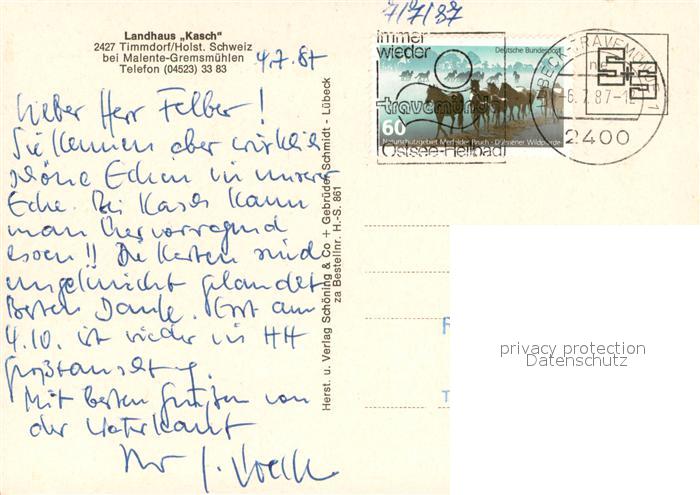 Landhaus „Kasch“
2427 Timmdorf/Holst. Schweiz
bei Malente-Gremsmühlen
Telefon (04523) 33 83
4.7.87
Lieber Herr Felber!
Sie kennen aber wirklich
schöne Ecken in unserer
Ecke. Bei Kasch kann
man hervorragend
essen!! Die Karten sind
ungeknickt gelandet
Besten Dank. Erst am
4.10. ist wieder in HH
Großtauschtag.
Mit besten Grüßen von
der Waterkant
Ihr J.
Herst. u. Verlag Schöning & Co + Gebrüder Schmidt - Lübeck
za Bestellnr. H.-S. 861
7/7/87
immer
wieder
travemünde
Ostsee-Heilbad
Deutsche Bundespost
60
Naturschutzgebiet Merfelder Bruch - Dülmener Wildpferde
LÜBECK-TRAVEMÜNDE 1
-6.7.87-12
2400
privacy protection
Datenschutz